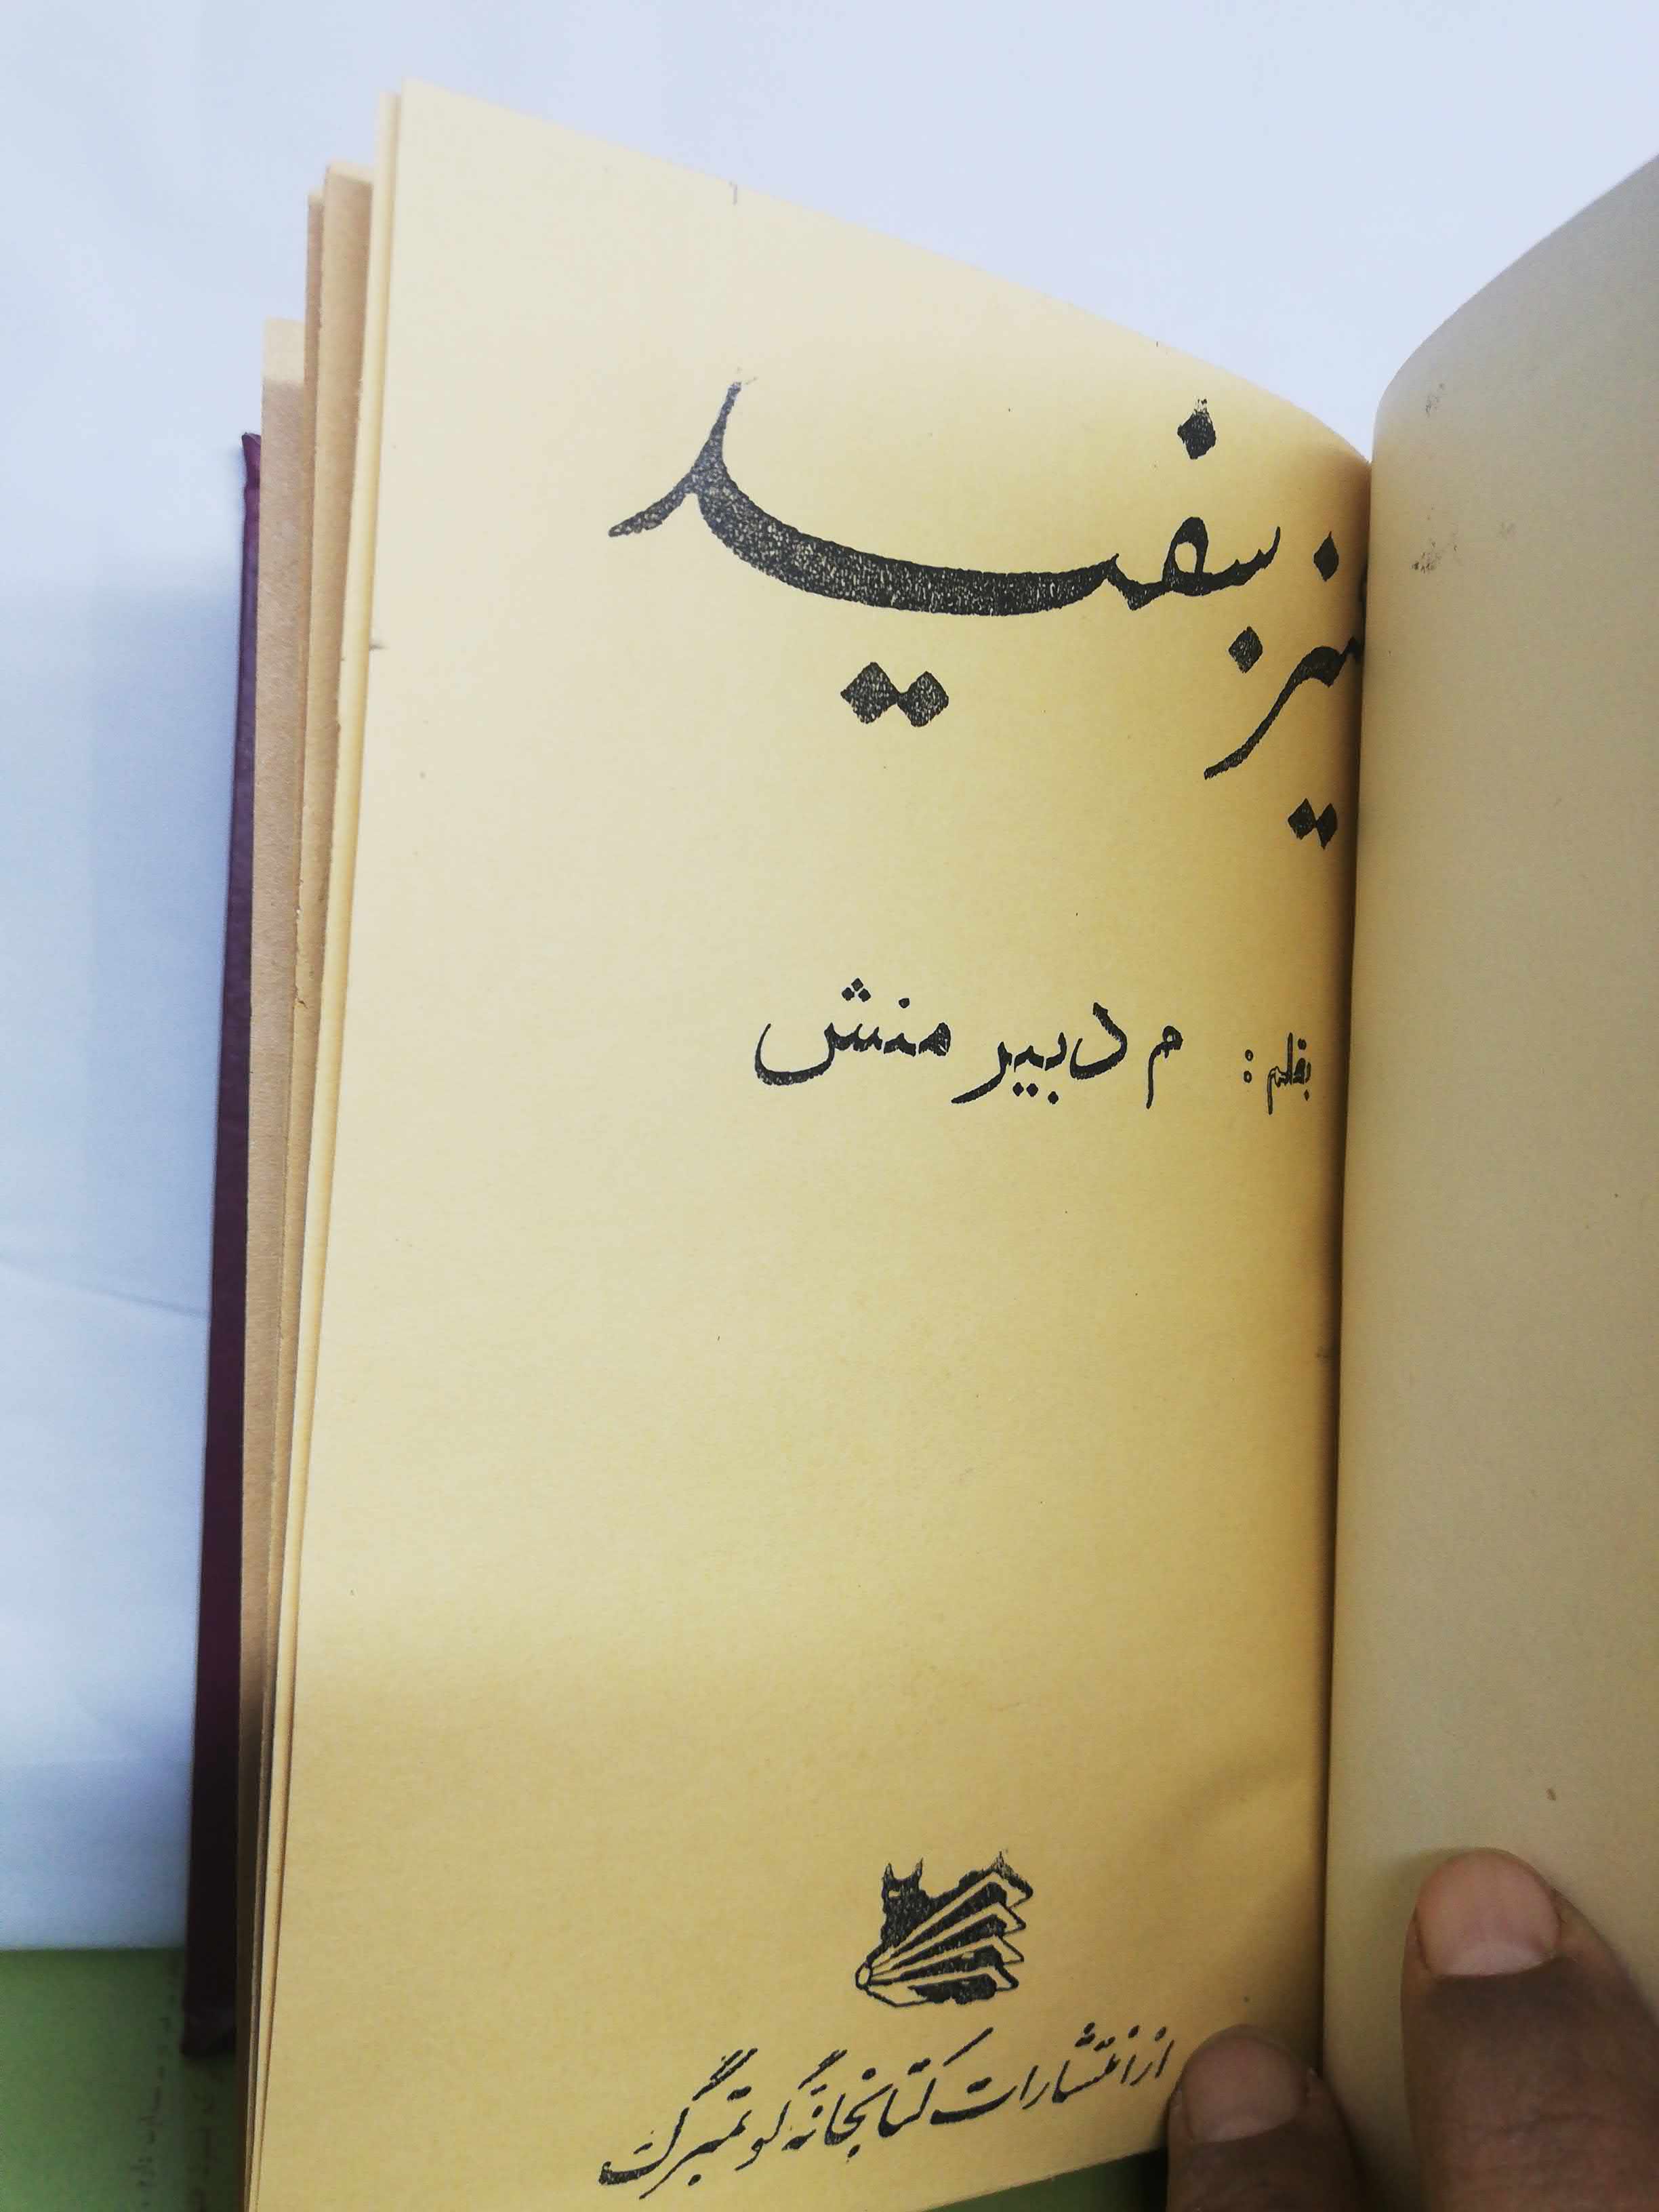 سفید
بقلم : م دبیر منش
از انتشارات کتابخانه گوتمبرگ